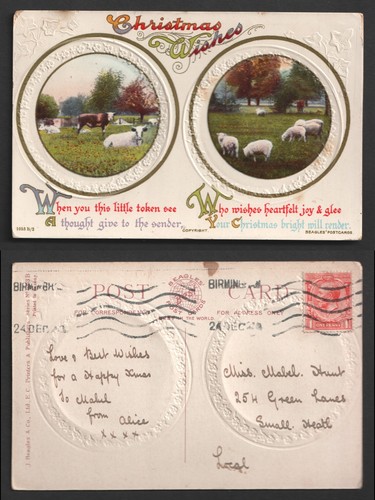 Christmas
Wishes
When you this little token see
A thought give to the sender,
Who wishes heartfelt joy & glee
Your Christmas bright will render.
COPYRIGHT
BEAGLES' POSTCARDS
BIRMINGH
24 DEC
POST
CARD
FOR CORRESPONDENCE
FOR ADDRESS ONLY
BEAGLES
THE WORLD.
BIRMING
24 DEC
J. Beagles & Co., Ltd. E.C. Printers & Publishers
Love & Best Wishes
for a Happy Xmas
To Mabel
from
Alice
x x x x
Miss. Mabel. Hunt
254 Green Lanes
Small Heath
Local